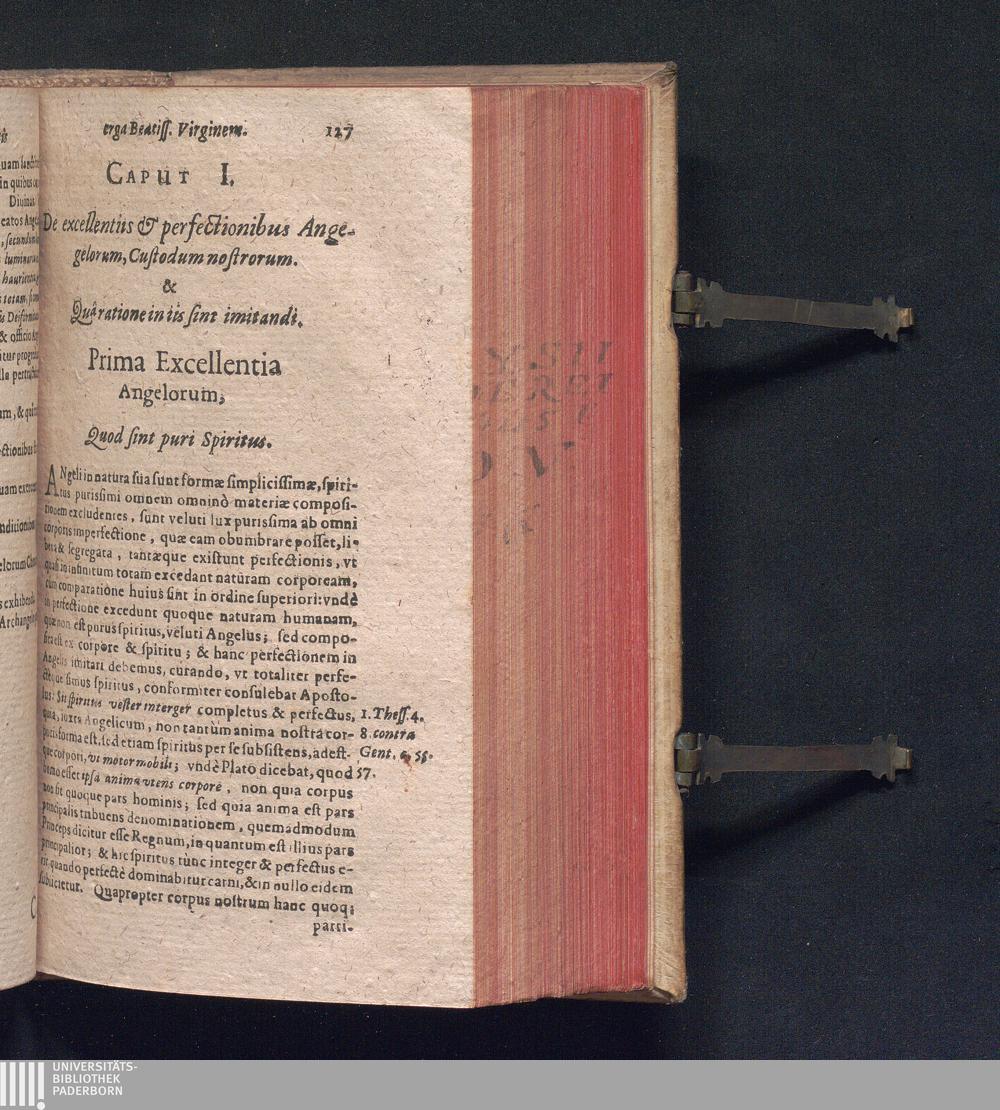 erga Beatiss. Virginem. 127
CAPUT I.
De excellentiis & perfectionibus Ange-
gelorum, Custodum nostrorum.
&
Quâ ratione in iis sint imitandi.
Prima Excellentia
Angelorum,
Quod sint puri Spiritus.
ANgeli in natura sua sunt formæ simplicissimæ, spiri-
tus purissimi omnem omninò materiæ composi-
tionem excludentes, sunt veluti lux purissima ab omni
corporis imperfectione, quæ eam obumbrare posset, li-
bera & segregata, tantæque existunt perfectionis, vt
quasi in infinitum totam excedant naturam corpoream,
cum comparatione huius sint in ordine superiori: vndè
in perfectione excedunt quoque naturam humanam,
quæ non est purus spiritus, veluti Angelus; sed compo-
sita est ex corpore & spiritu; & hanc perfectionem in
Angelis imitari debemus, curando, vt totaliter perfe-
ctè ue simus spiritus, conformiter consulebat Aposto-
lus: Sit spiritus vester interger completus & perfectus, 1. Thess. 4.
quia, iuxta Angelicum, non tantùm anima nostra cor- 8. contra
poris forma est, sed etiam spiritus per se subsistens, adest- Gent. c. 55.
que corpori, vt motor mobili; vndè Plato dicebat, quod 57.
homo esset ipsa anima vtens corpore, non quia corpus
non sit quoque pars hominis; sed quia anima est pars
principalis tribuens denominationem, quemadmodum
Princeps dicitur esse Regnum, in quantum est illius pars
principalior; & hic spiritus tùnc integer & perfectus e-
rit, quando perfectè dominabitur carni, & in nullo eidem
subiicietur. Quapropter corpus nostrum hanc quoq;
parti-
uam
in quibus
Diuinas
eatos
& officio
ectionibus
uam
elorum
Archang
UNIVERSITÄTS-
BIBLIOTHEK
PADERBORN